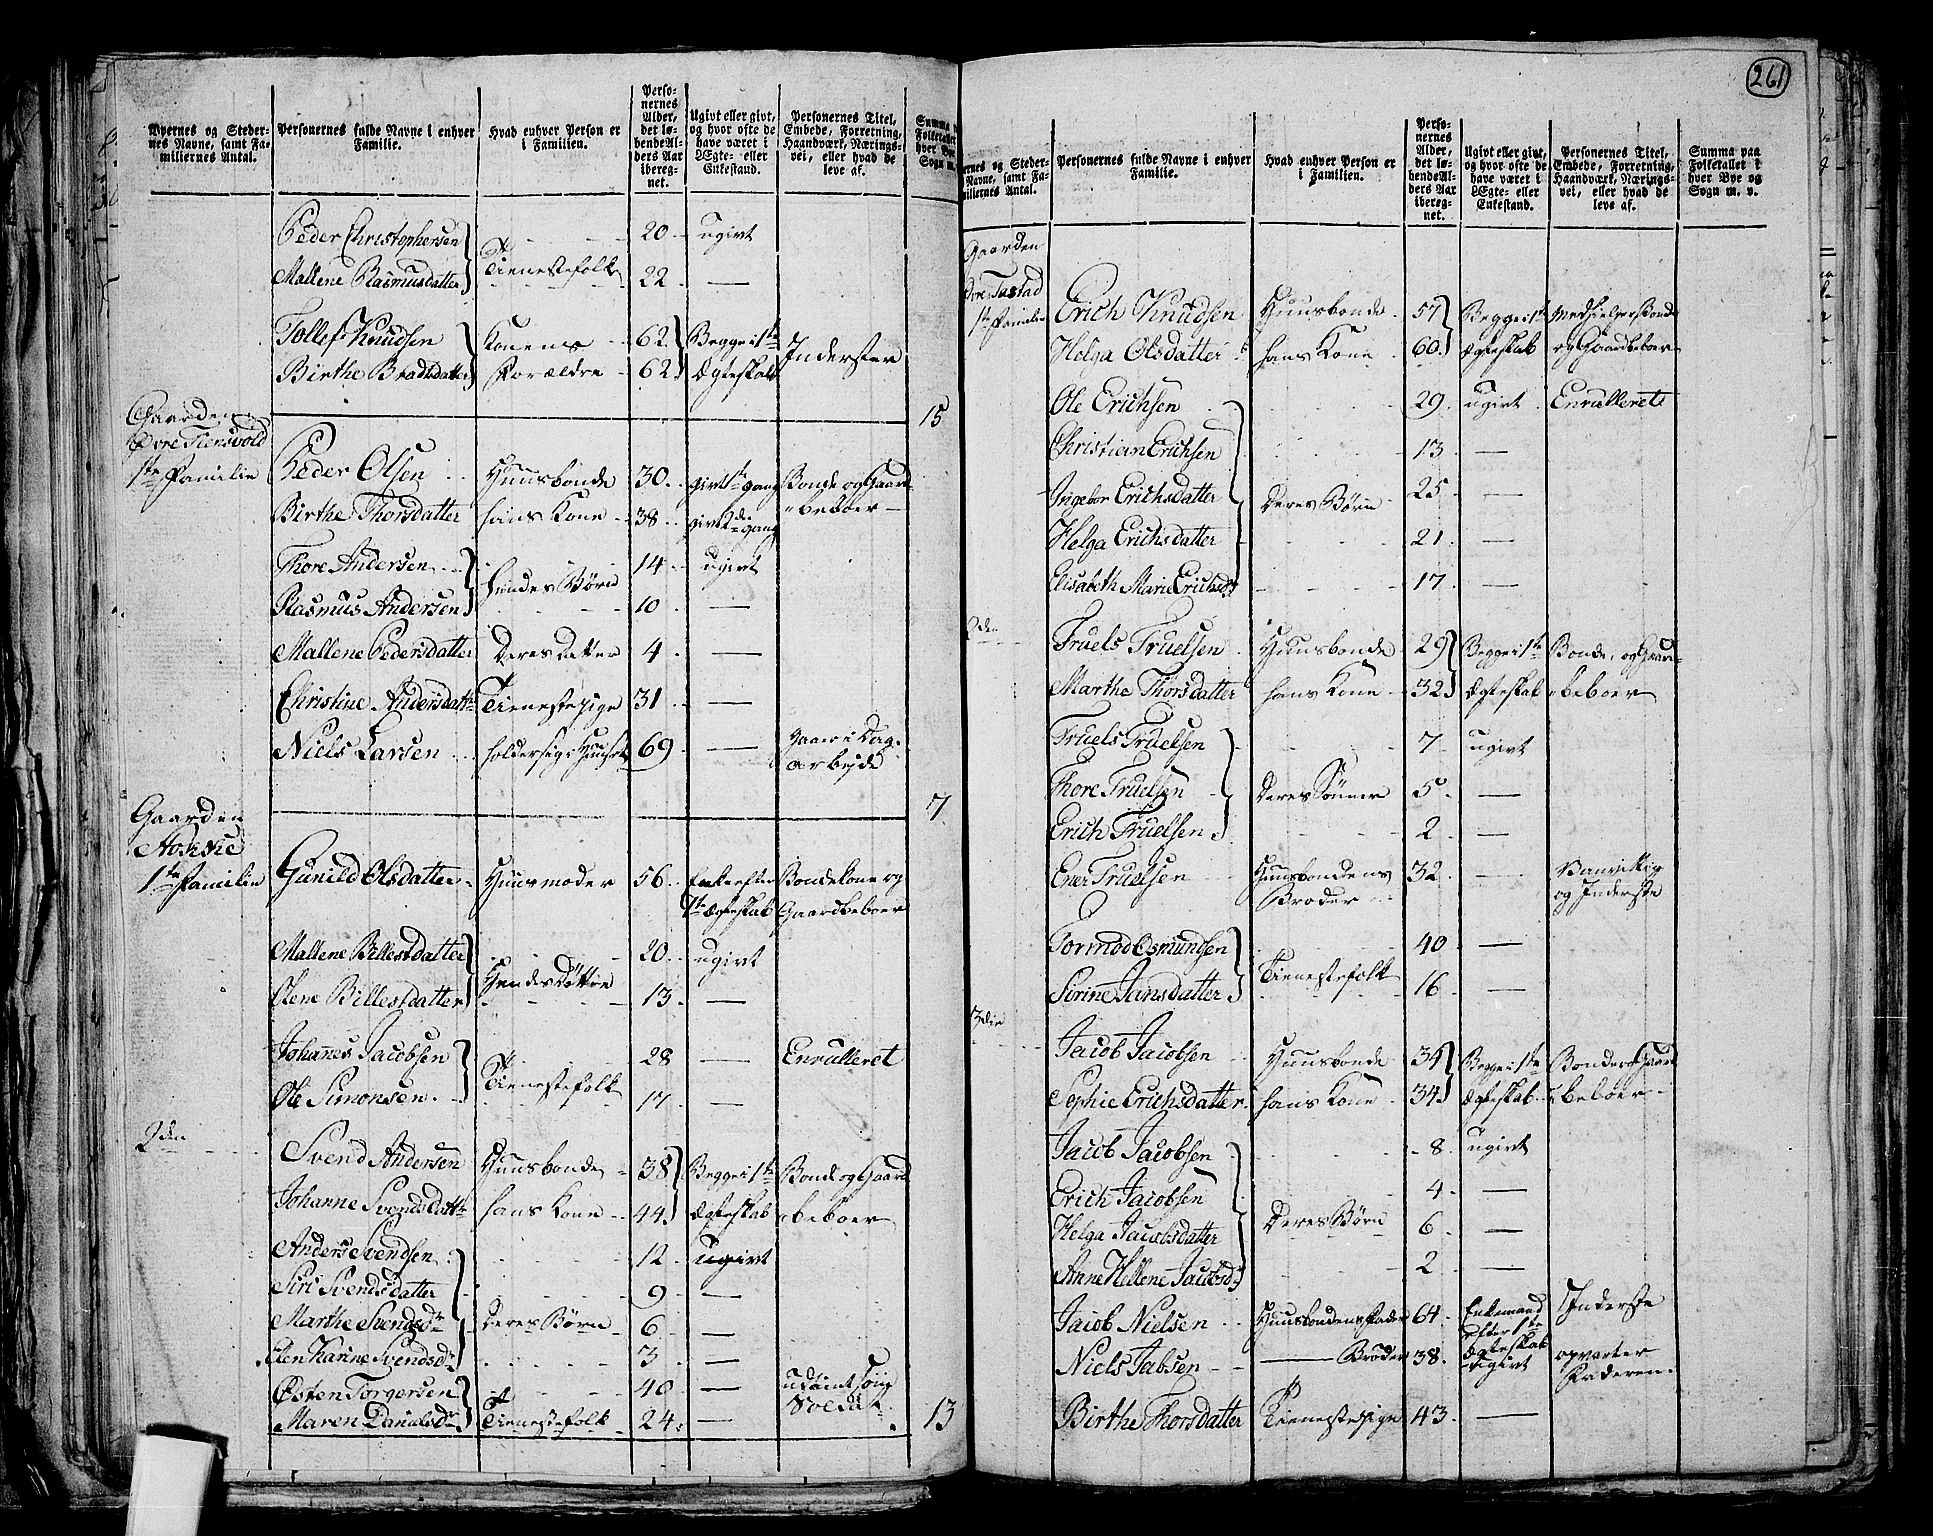 261
Byernes og Steder-
nes Navne, samt Fa-
miliernes Antal.
Personernes fulde Navne i enhver
Familie.
Hvad enhver Person er
i Familien.
Perso-
nernes
Alder,
det lø-
bende Al-
ders Aar
ibereg-
net.
Ugivt eller givt,
og hvor ofte de
have været i
Ægte- eller
Enkestand.
Personernes Titel,
Embede, Forretning,
Haandværk, Nærings-
vei, eller hvad de
leve af.
Summa
Folketallet
hver Bye
Sogn m.
Peder Christophersen 20 ugivt
Tienestefolk
Mallene Rasmusdatter 22 —
Tollef Knudsen Konens 62 Begge i 1ste Inderster
Birthe Forældre 62 Ægteskab
15
Gaarden
Øvre
1ste Familie
Peder Olsen Huusbonde 30 givt 1ste gang Bonde og Gaard
Birthe Thorsdatter hans Kone 38 givt 2den gang beboer
Thore Andersen 14 ugivt
hendes Børn
Rasmus Andersen 10 —
Mallene Pedersdatter Deres Datter 4 —
Christine Andersdattr Tienestepige 31 —
Niels Larsen holder sig i Huuset 69 — gaaer i Dag-
arbejde
7
Gaarden
1ste Familie
Gunild Olsdatter Huusmoder 56 Enke efter Bondekone og
1ste Ægteskab Gaardbeboer
Mallene Billesdatter 20 ugivt
Hendes Døttre
Olene Billesdatter 13 —
Johannes Jacobsen 28 — Enrulleret
Tienestefolk
Ole Simonsen 17 —
2den
Svend Andersen Huusbonde 38 Begge i 1ste Bonde og Gaard
Johanne Svendsdattr hans Kone 44 Ægteskab beboer
Anders Svendsen 12 ugivt
Siri Svendsdatter 9 —
Marthe Svendsdr Deres Børn 6 —
Karine Svendsdr 3 —
Østen Torgersen 40 —
Maren Danielsdr Tienestefolk 24 — Soldat
13
ernes og Steder-
Navne, samt Fa-
miliernes Antal.
Personernes fulde Navne i enhver
Familie.
Hvad enhver Person er
i Familien.
Perso-
nernes
Alder,
det lø-
bende Al-
ders Aar
ibereg-
net.
Ugivt eller givt,
og hvor ofte de
have været i
Ægte- eller
Enkestand.
Personernes Titel,
Embede, Forretning,
Haandværk, Nærings-
vei, eller hvad de
leve af.
Summa paa
Folketallet i
hver Bye og
Sogn m. v.
Gaarden
Øvre Tastad
1ste Familie
Erich Knudsen Huusbonde 57 Begge i 1ste Medhielper Bonde
Helga Olsdatter hans Kone 60 Ægteskab og Gaardbeboer
Ole Erichsen 29 ugivt Enrulleret
Christian Erichsen 13 —
Ingebor Erichsdatter Deres Børn 25 —
Helga Erichsdatter 21 —
Elisabeth Marie Erichsdr 17 —
2den
Truels Truelsen Huusbonde 29 Begge i 1ste Bonde og Gaard
Marthe Thorsdatter hans Kone 32 Ægteskab beboer
Truels Truelsen 7 ugivt
Thore Truelsen Deres Sønner 5 —
Erich Truelsen 2 —
Ener Truelsen Huusbondens 32 — Vanvittig
Broder og Inderste
Tormod Osmundsen 40 —
Tienestefolk
Serine Jansdatter 16 —
3die
Jacob Jacobsen Huusbonde 34 Begge i 1ste Bonde og Gaard
Sophie Erichsdatter hans Kone 34 Ægteskab beboer
Jacob Jacobsen 8 ugivt
Erich Jacobsen 4 —
Deres Børn
Helga Jacobsdatter 6 —
Anne Hellene Jacobsdr 2 —
Jacob Nielsen Huusbondens Fader 64 Enkemand Inderste
efter 1ste
Ægteskab
Niels Jabsen — Broder 38 ugivt opvarter
Faderen
Birthe Thorsdatter Tienestepige 43 —